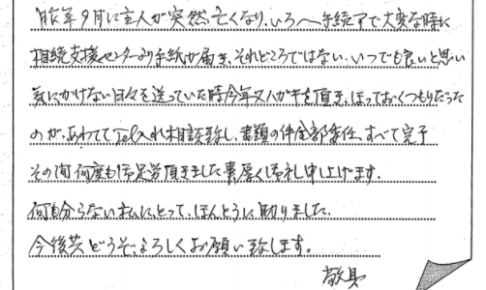 昨年9月に主人が突然亡くなり、いろへ手続で大変な時に
相続支援センターより手紙が届き、それどころではない、いつでも良いと思い
気にかけない日々を送っていた時今年又ハガキを頂き、ほっておくつもりだった
のが、あわててTel入れ相談致し、書類の件全部委任、すべて完了
その間何度も御足労頂きました事厚く御礼申し上げます。
何も分らない私にとって、ほんとうに助りました。
今後共どうぞ、よろしくお願い致します。
敬具